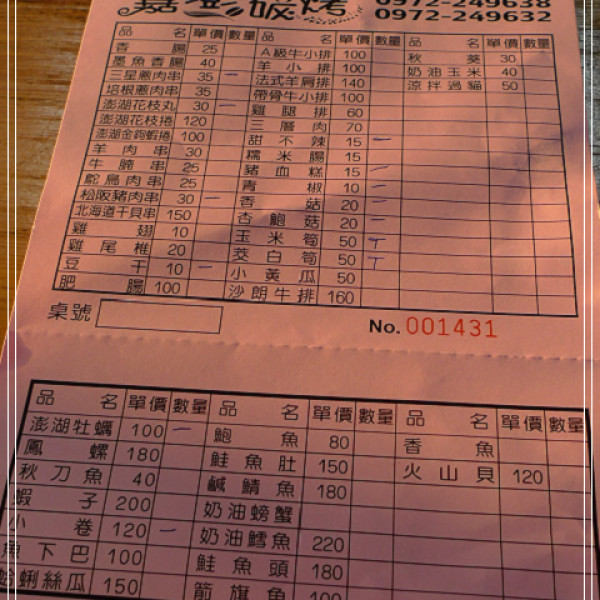 嘉澎碳烤 0972-249638
0972-249632
品名 單價 數量 品名 單價 數量 品名 單價 數量
香腸 25 A級牛小排 100 秋葵 30
墨魚香腸 40 羊小排 100 奶油玉米 40
三星蔥肉串 35 一 法式羊肩排 140 涼拌過貓 50
培根蔥肉串 35 帶骨牛小排 100
澎湖花枝丸 30 一 雞腿排 60
澎湖花枝捲 120 三層肉 70
澎湖金鉤蝦捲 100 甜不辣 15 一
羊肉串 30 糯米腸 15
牛腩串 25 豬血糕 15 一
鴕鳥肉串 25 青椒 10 一
松阪豬肉串 30 一 香菇 20 一
北海道干貝串 150 杏鮑菇 20 一
雞翅 10 玉米筍 50 丅
雞尾椎 20 茭白筍 50 丅
豆干 10 一 小黃瓜 50
肥腸 100 沙朗牛排 160
桌號
No. 001431
品名 單價 數量 品名 單價 數量 品名 單價 數量
澎湖牡蠣 100 一 鮑魚 80 香魚
鳳螺 180 鮭魚肚 150 火山貝 120
秋刀魚 40 鹹鯖魚 180
蝦子 200 奶油螃蟹
小卷 120 一 奶油鱈魚 220
魚下巴 100 鮭魚頭 180
蛤蜊絲瓜 150 箭旗魚 100